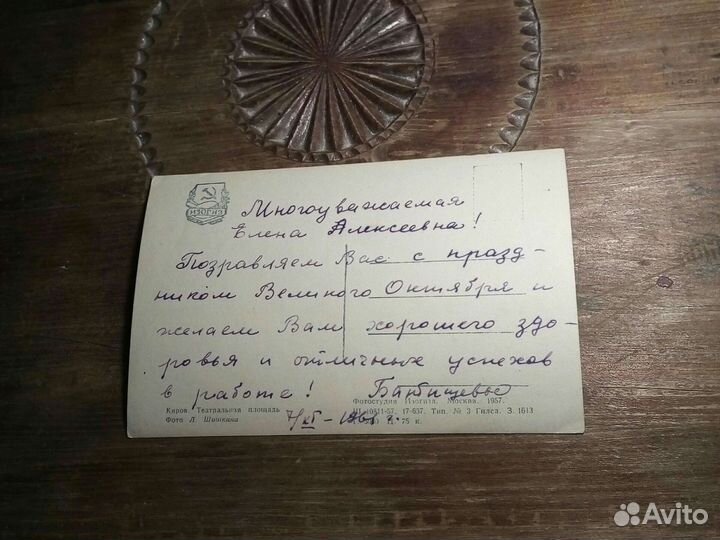 ИЗОГИЗ
Многоуважаемая
Елена Алексеевна!
Поздравляем Вас с празд-
ником Великого Октября и
желаем Вам хорошего здо-
ровья и отличных успехов
в работе!
Киров. Театральная площадь
Фото Л. Шишкина
Фотостудия Изогиза. Москва. 1957.
10311-57. 17-637. Тип. № 3 Гиlsа. З. 1613
75 к.
7/XI-1961 г.
Avito